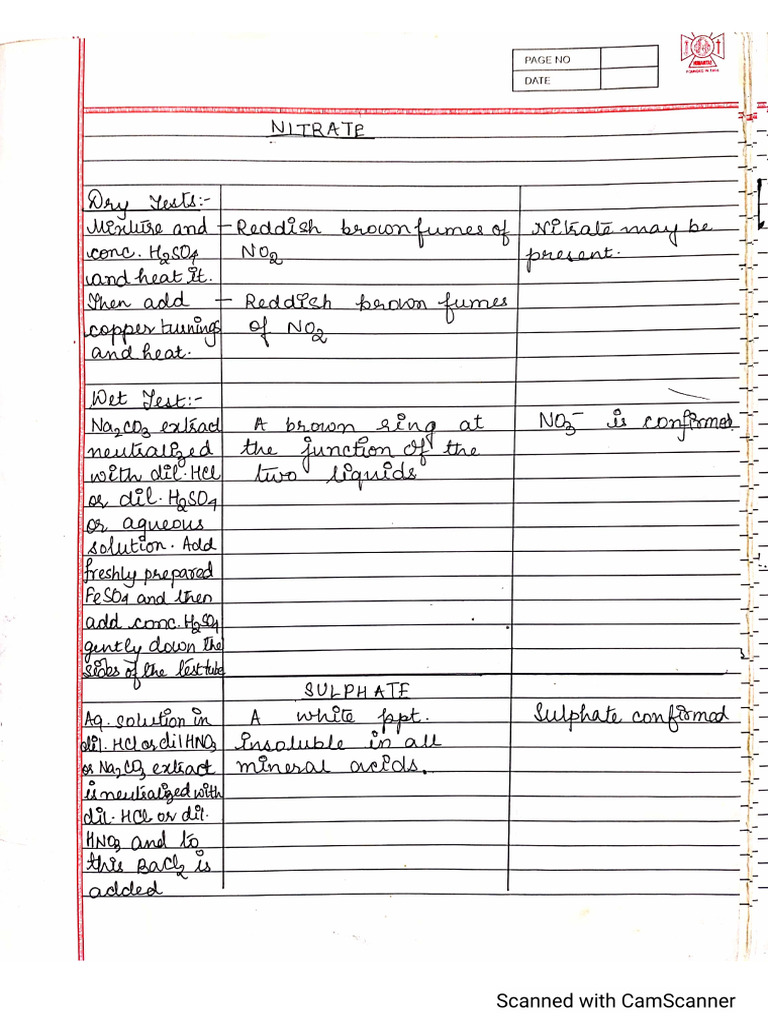 PAGE NO
DATE
NITRATE
Dry Tests:-
Mixture and - Reddish brown fumes of Nitrate may be
conc. H2SO4 NO2 present.
and heat it.
Then add - Reddish brown fumes
copper turnings of NO2
and heat.
Wet Test:-
Na2CO3 extract A brown ring at NO3- is confirmed
neutralized the junction of the
with dil. HCl two liquids
or dil. H2SO4
or aqueous
solution. Add
freshly prepared
FeSO4 and then
add conc. H2SO4
gently down the
sides of the test tube
SULPHATE
Aq. solution in A white ppt. Sulphate confirmed
dil. HCl or dil HNO3 insoluble in all
or Na2CO3 extract mineral acids.
is neutralized with
dil. HCl or dil.
HNO3 and to
this BaCl2 is
added
Scanned with CamScanner